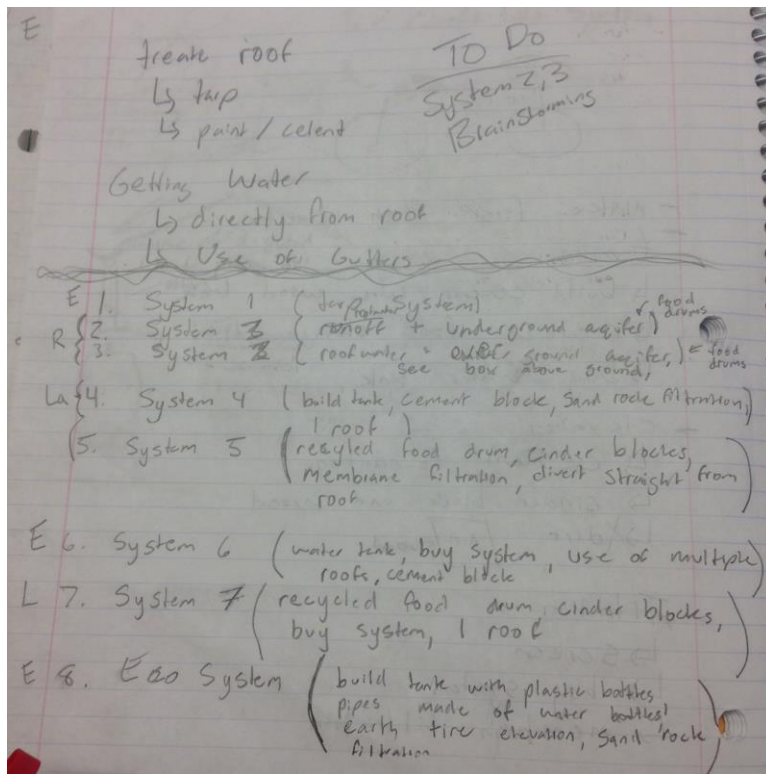 E
treate roof
↳ tarp
↳ paint / celent
TO DO
System 2, 3
Brainstorming
Getting Water
↳ directly from roof
↳ Use of Gutters
E 1. System 1 (tarp System)
R { 2. System 3 (runoff + underground aqifer) ← food drums
3. System 2 (roofwater, ground aqifer,) ← food drums
see box above ground,
La { 4. System 4 (build tank, cement block, Sand rock filtration,
1 roof)
5. System 5 (recycled food drum, cinder blocks,
membrane filtration, divert straight from
roof)
E 6. System 6 (water tank, buy system, use of multiple
roofs, cement block)
L 7. System 7 (recycled food drum, cinder blocks,
buy system, 1 roof)
E 8. Eco System (build tank with plastic bottles
pipes made of water bottles,
earth tire elevation, Sand rock
filtration)